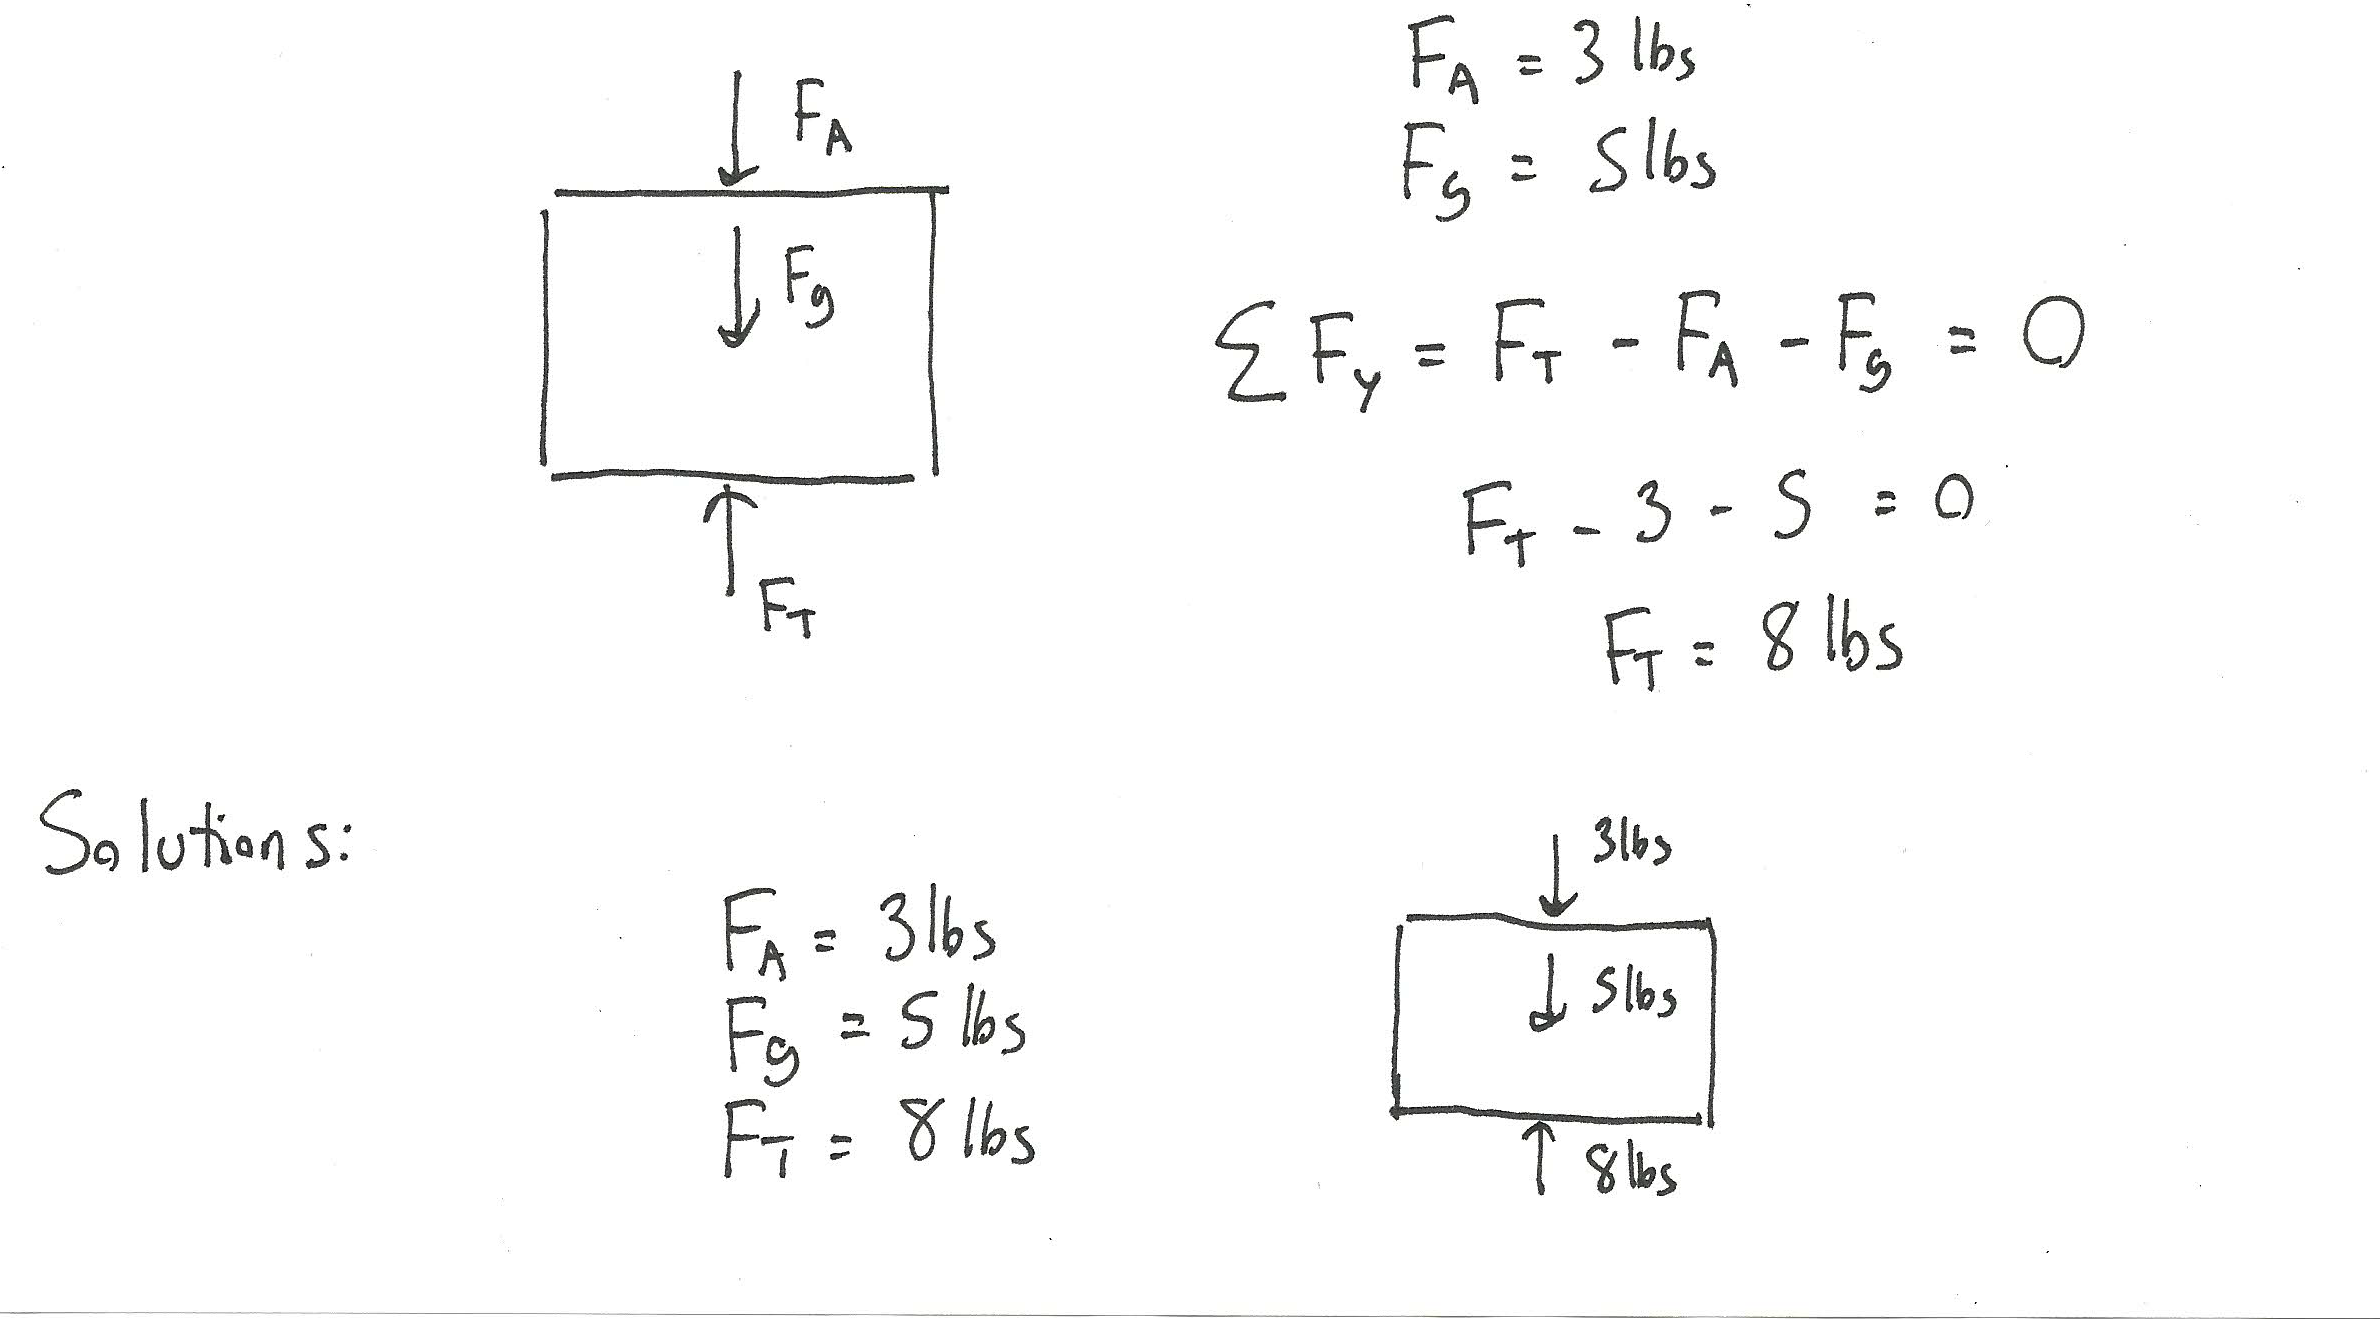 F_A
F_g
F_T
F_A = 3 lbs
F_g = 5 lbs
Σ F_y = F_T - F_A - F_g = 0
F_T - 3 - 5 = 0
F_T = 8 lbs
Solutions:
F_A = 3 lbs
F_g = 5 lbs
F_T = 8 lbs
3 lbs
5 lbs
8 lbs